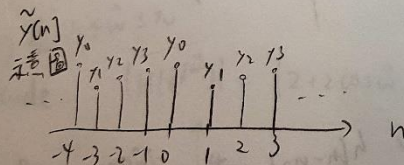 ỹ[n]
示意圖
y₀ y₁ y₂ y₃ y₀ y₁ y₂ y₃
... ...
-4 -3 -2 -1 0 1 2 3 n